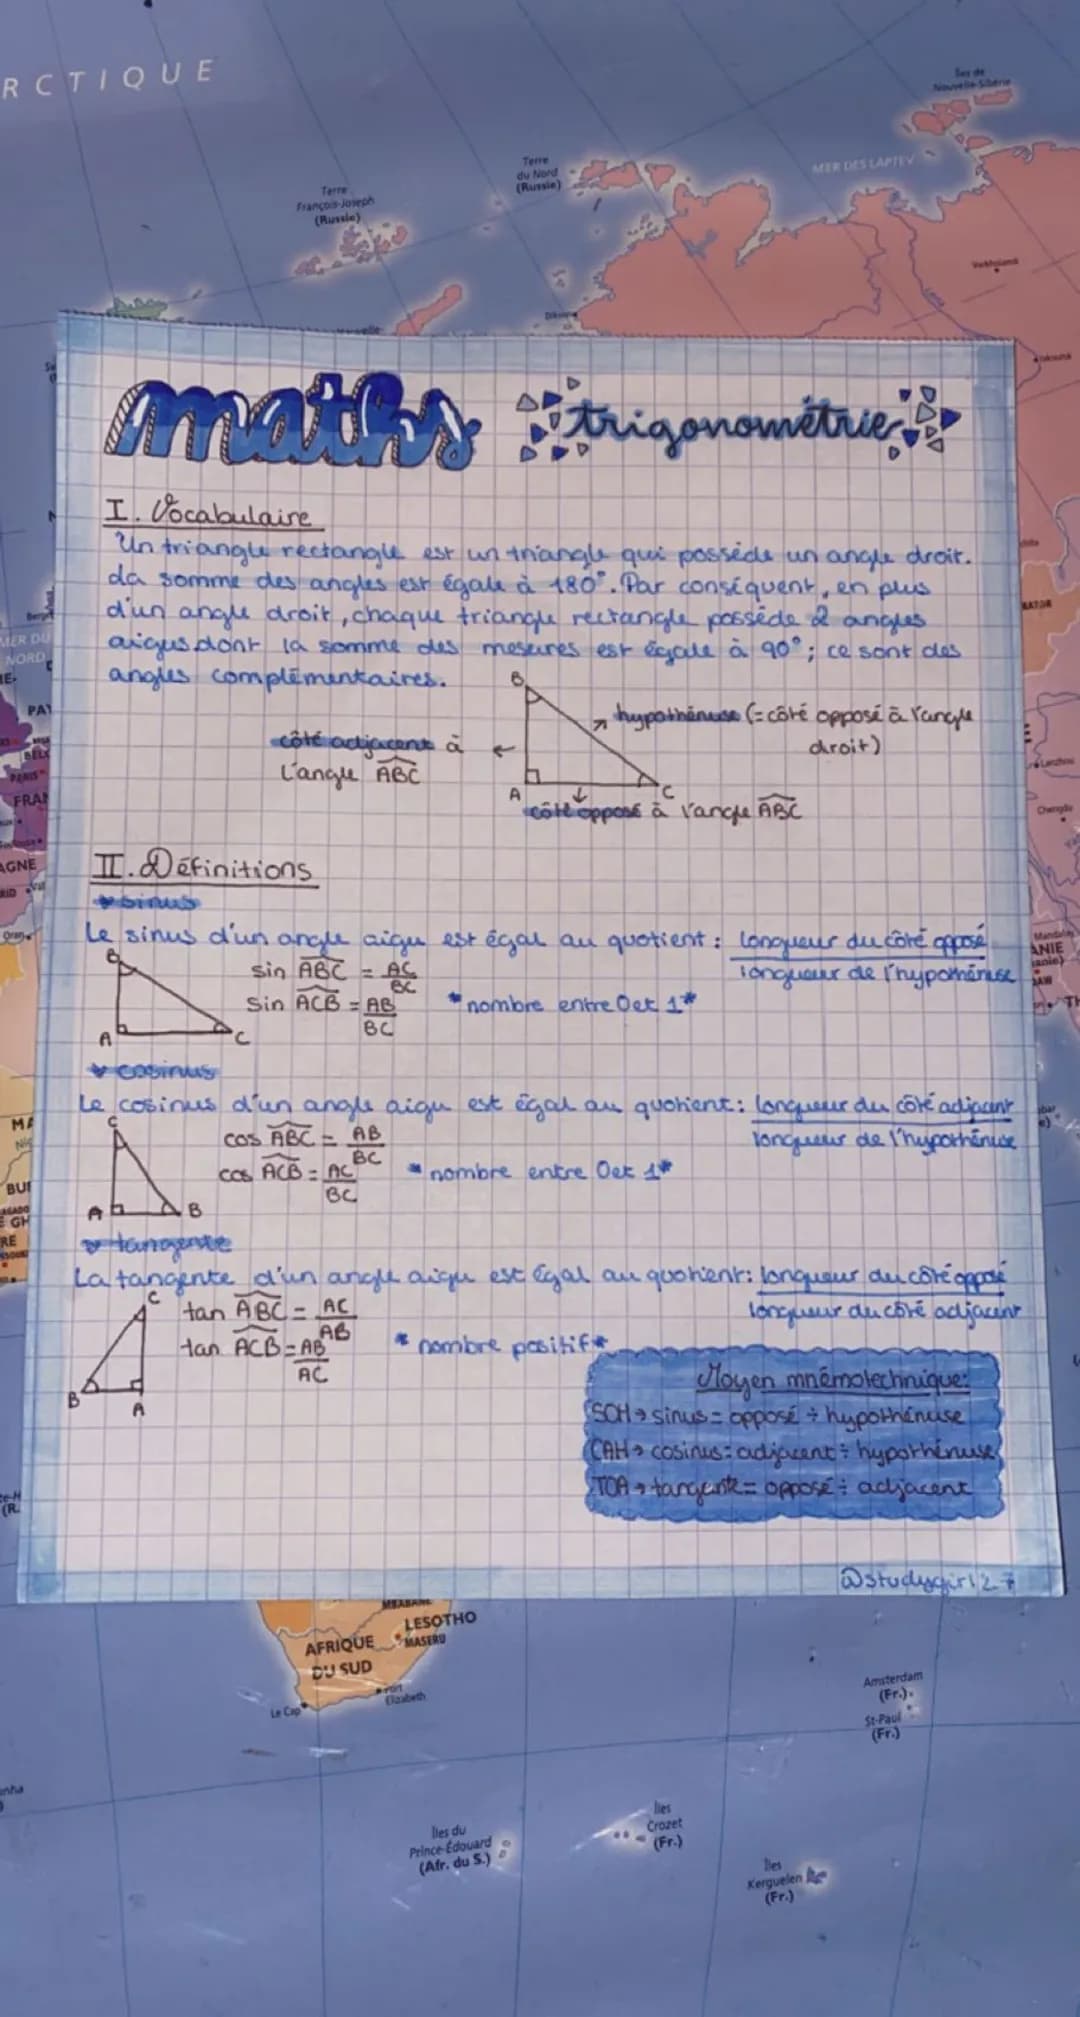 RCTIQUE
Îles de
Nouvelle-Sibérie
MER DES LAPTEV
Terre
du Nord
(Russie)
Terre
François-Joseph
(Russie)
maths trigonométrie
I. Vocabulaire
Un triangle rectangle est un triangle qui possède un angle droit.
La somme des angles est égale à 180°. Par conséquent, en plus
d'un angle droit, chaque triangle rectangle possède 2 angles
aigus dont la somme des mesures est égale à 90°; ce sont des
angles complémentaires.
B
hypothénuse (= côté opposé à l'angle
droit)
côté adjacent à
l'angle ABC
A
C
côté opposé à l'angle ABC
II. Définitions
sinus
Le sinus d'un angle aigu est égal au quotient : longueur du côté opposé
longueur de l'hypothénuse
B
sin ABC = AC
BC
sin ACB = AB
BC
*nombre entre 0 et 1*
A
C
cosinus
Le cosinus d'un angle aigu est égal au quotient: longueur du côté adjacent
longueur de l'hypothénuse
C
cos ABC = AB
BC
cos ACB = AC
BC
*nombre entre 0 et 1*
A
B
tangente
La tangente d'un angle aigu est égal au quotient: longueur du côté opposé
longueur du côté adjacent
C
tan ABC = AC
AB
tan ACB = AB
AC
*nombre positif*
B
A
Moyen mnémotechnique:
SOH → sinus = opposé ÷ hypothénuse
CAH → cosinus = adjacent ÷ hypothénuse
TOA → tangente = opposé ÷ adjacent
@studygirl27
MER DU
NORD
PARIS
AGNE
Oran
Lanzhou
Chengdu
Mandalay
MBABANE
LESOTHO
MASERU
AFRIQUE
DU SUD
Port
Elizabeth
Le Cap
Amsterdam
(Fr.)
St-Paul
(Fr.)
Îles du
Prince-Édouard
(Afr. du S.)
Îles
Crozet
(Fr.)
Îles
Kerguelen
(Fr.)